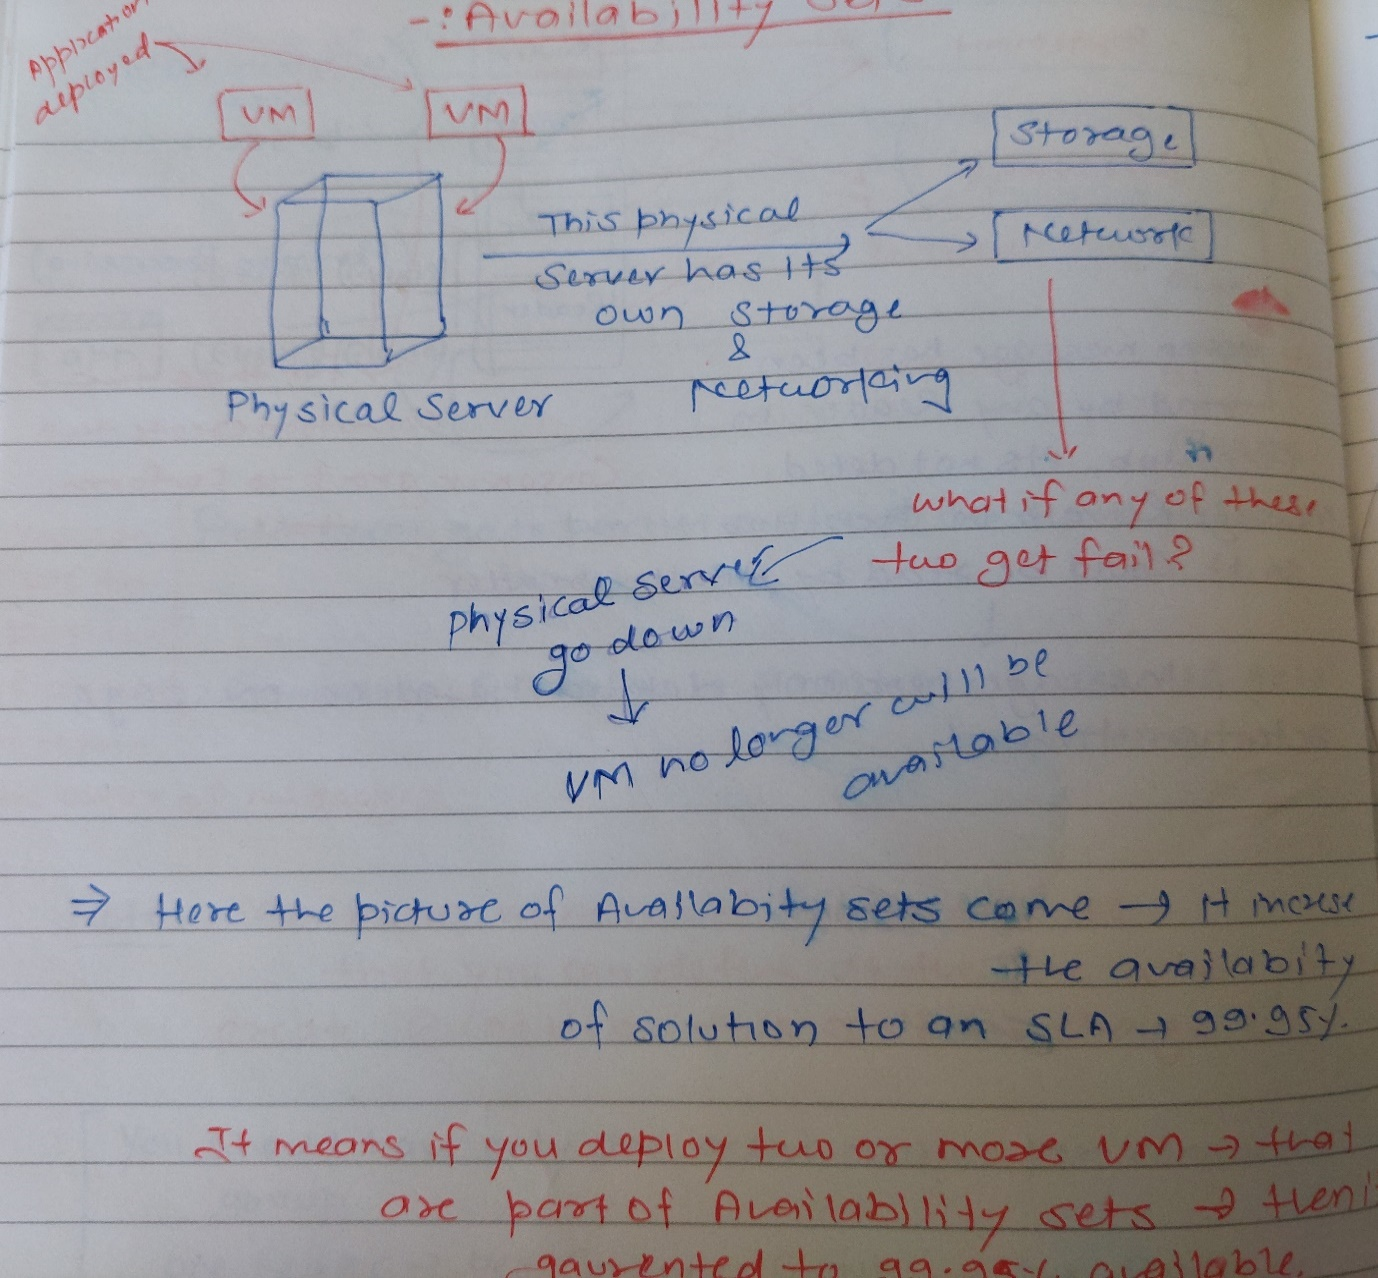 -: Availability
Application
deployed
VM
VM
Storage
Network
This physical
Server has its
own storage
&
Networking
Physical Server
what if any of these
two get fail?
physical server
go down
VM no longer will be
available
⇒ Here the picture of Availabity sets come → it increse
the availabity
of solution to an SLA → 99.95%.
It means if you deploy two or more VM → that
are part of Availability sets →
gaurented to 99.95% available